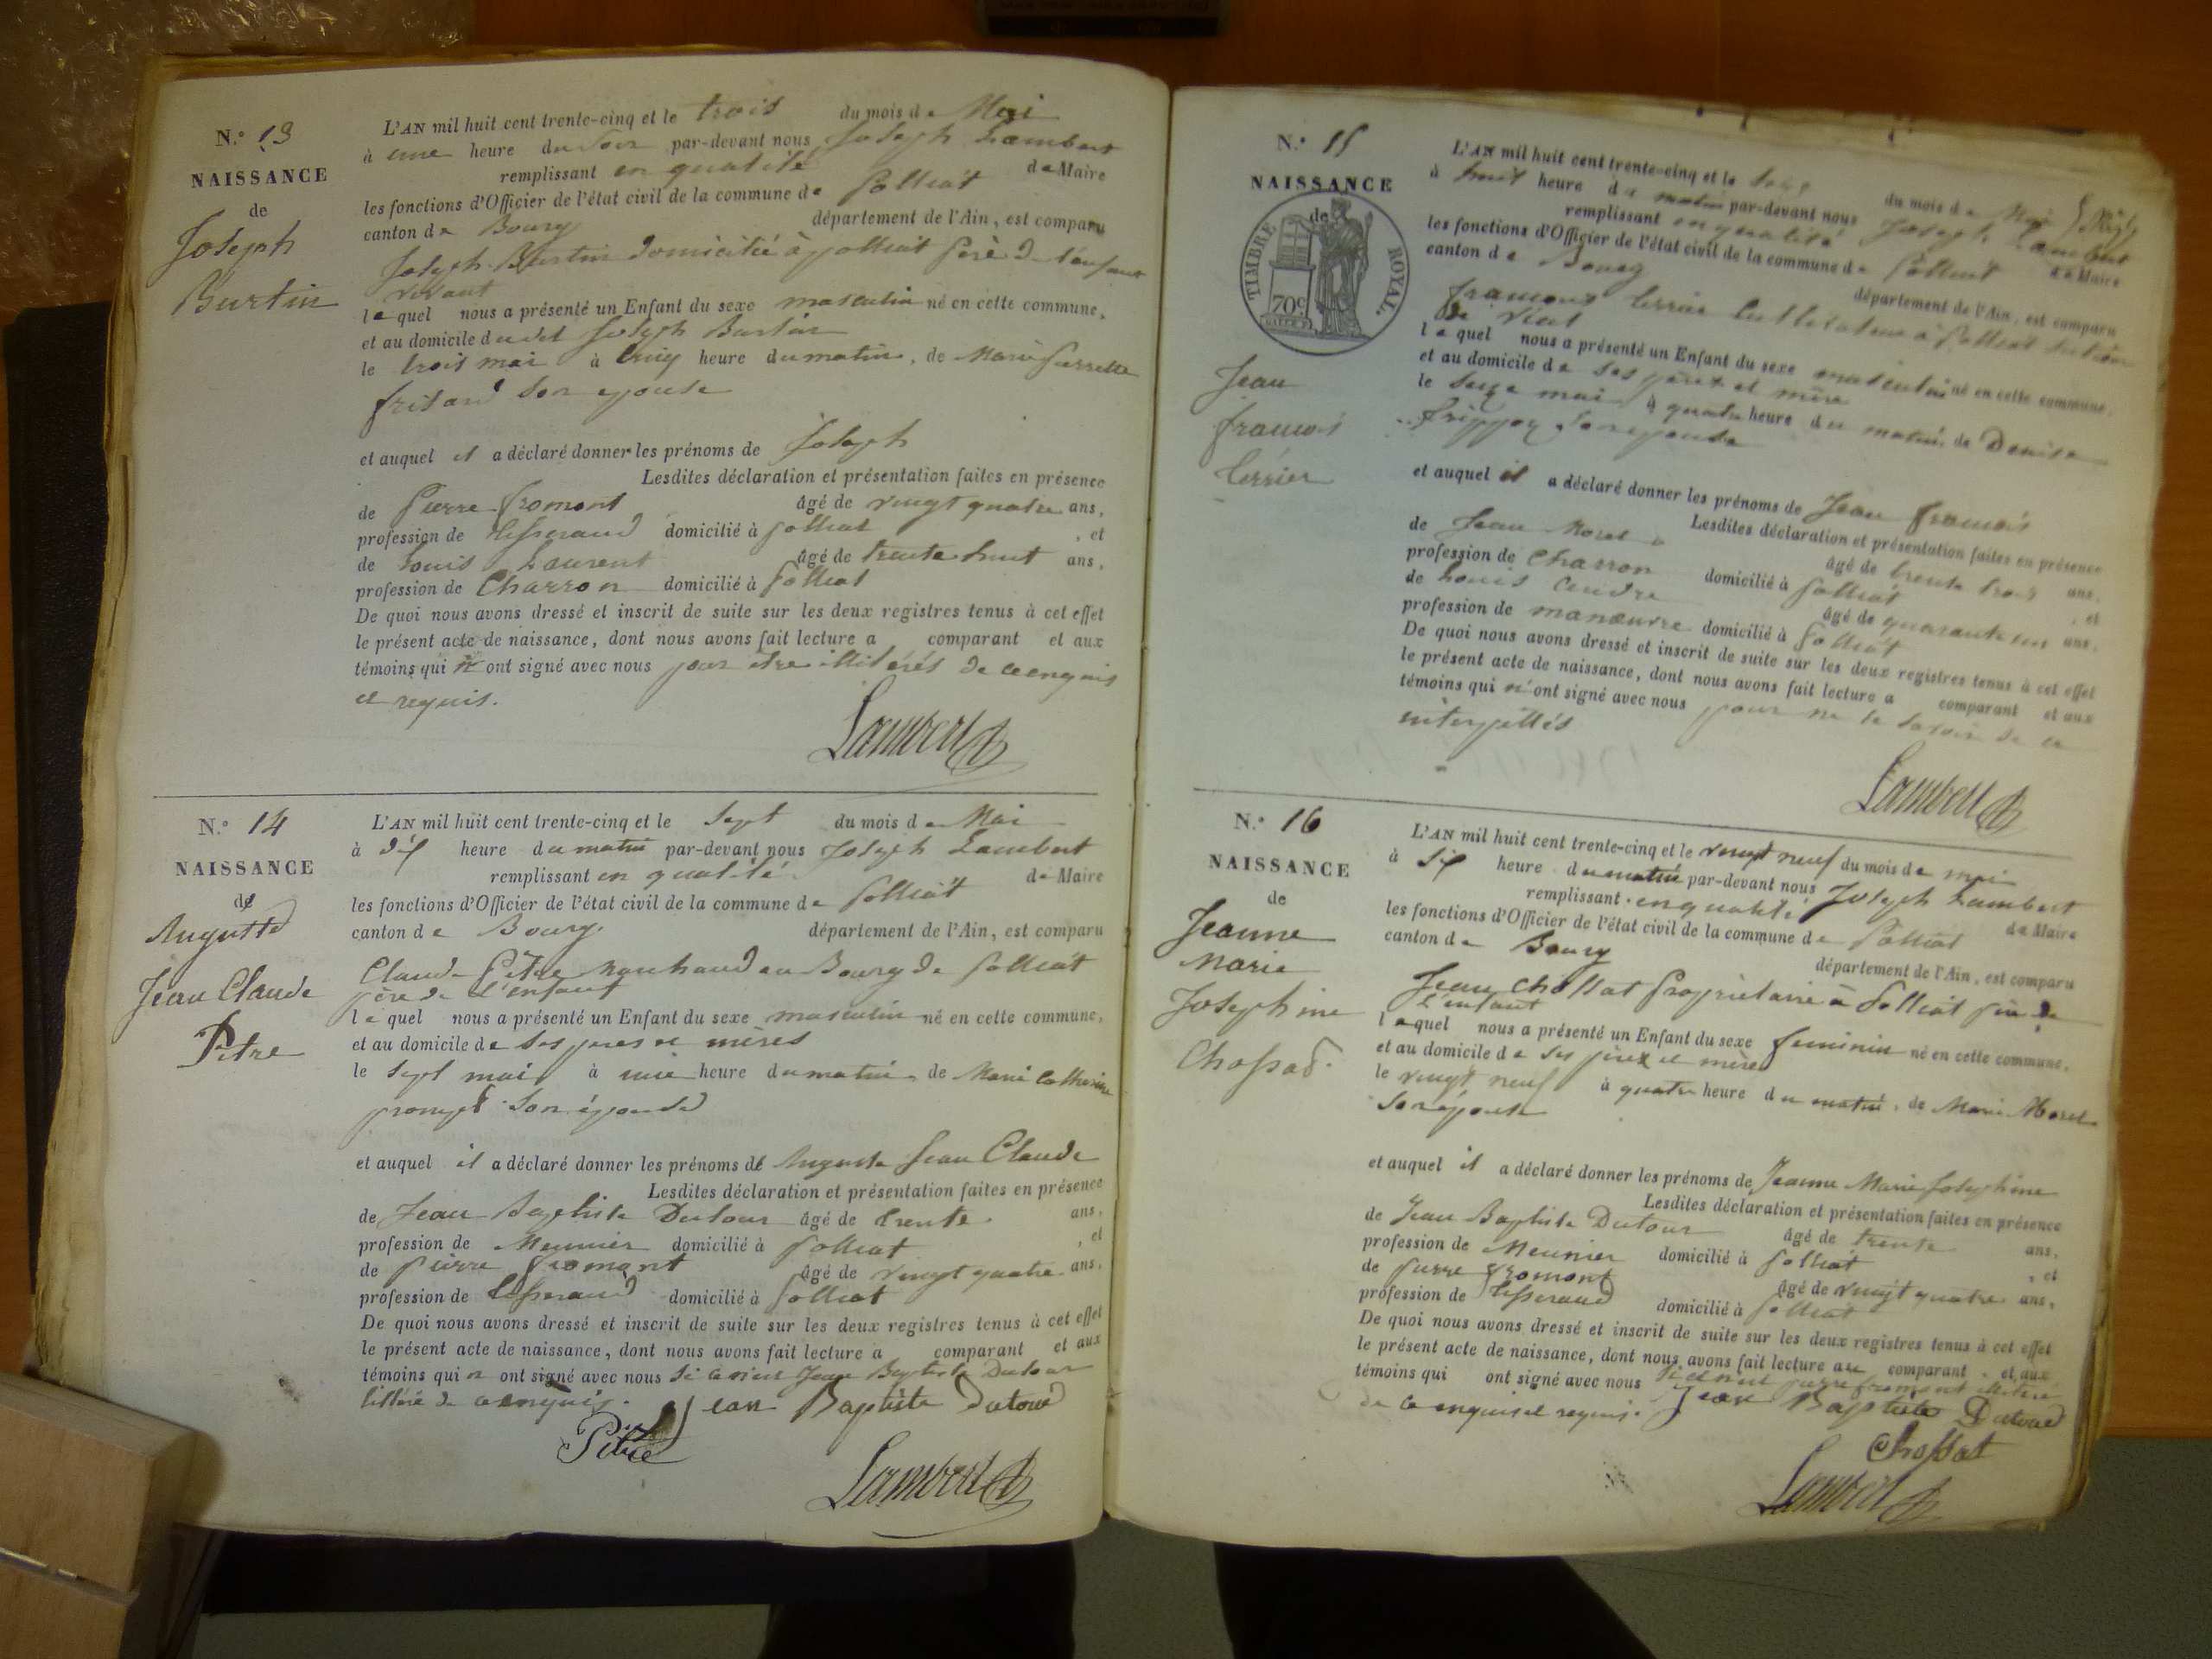 N.° 13
NAISSANCE
de
Joseph
Burtin
L'AN mil huit cent trente-cinq et le trois du mois de Mai
à une heure du Soir par-devant nous Joseph Lambert
remplissant en qualité de Maire
les fonctions d'Officier de l'état civil de la commune de Polliat
canton de Bourg département de l'Ain, est comparu
Joseph Burtin domicilié à polliat père de l'enfant
vivant
lequel nous a présenté un Enfant du sexe masculin né en cette commune,
et au domicile dudit Joseph Burtin
le trois mai à cinq heure du matin, de Marie perrette
frisard son epouse
et auquel il a déclaré donner les prénoms de Joseph
Lesdites déclaration et présentation faites en présence
de Pierre fromont âgé de vingt quatre ans,
profession de tisserand domicilié à polliat, et
de Louis Laurent âgé de trente huit ans,
profession de Charron domicilié à polliat
De quoi nous avons dressé et inscrit de suite sur les deux registres tenus à cet effet
le présent acte de naissance, dont nous avons fait lecture a comparant et aux
témoins qui n'ont signé avec nous pour être illitérés de ce enquis
et requis.
Lambert
N.° 14
NAISSANCE
de
Auguste
Jean Claude
Pitre
L'AN mil huit cent trente-cinq et le sept du mois de Mai
à dix heure du matin par-devant nous Joseph Lambert
remplissant en qualité de Maire
les fonctions d'Officier de l'état civil de la commune de Polliat
canton de Bourg département de l'Ain, est comparu
Claude Pitre Marchand au Bourg de polliat
père de l'enfant
lequel nous a présenté un Enfant du sexe masculin né en cette commune,
et au domicile de ses peres et mères
le sept mai à une heure du matin, de Marie Catherine
son épouse
et auquel il a déclaré donner les prénoms de Auguste Jean Claude
Lesdites déclaration et présentation faites en présence
de Jean Baptiste Dutour âgé de trente ans,
profession de Meunier domicilié à polliat, et
de pierre fromont âgé de vingt quatre ans,
profession de tisserand domicilié à polliat
De quoi nous avons dressé et inscrit de suite sur les deux registres tenus à cet effet
le présent acte de naissance, dont nous avons fait lecture a comparant et aux
témoins qui n ont signé avec nous Jean Baptiste Dutour
de ce enquis. Jean Baptiste Dutour
Pitre
Lambert
N.° 15
NAISSANCE
de
TIMBRE ROYAL.
70c.
Jean
francois
terrier
L'AN mil huit cent trente-cinq et le du mois de Mai
à huit heure du matin par-devant nous Joseph Lambert
remplissant en qualité de Maire
les fonctions d'Officier de l'état civil de la commune de Polliat
canton de Bourg département de l'Ain, est comparu
francois terrier Cultivateur à polliat
lequel nous a présenté un Enfant du sexe masculin né en cette commune,
et au domicile de ses père et mère
le seize mai à quatre heure du matin, de Denise
son epouse
et auquel il a déclaré donner les prénoms de Jean francois
Lesdites déclaration et présentation faites en présence
de Jean Morel âgé de trente trois ans,
profession de Charron domicilié à polliat, et
de Louis âgé de quarante un ans,
profession de manoeuvre domicilié à polliat
De quoi nous avons dressé et inscrit de suite sur les deux registres tenus à cet effet
le présent acte de naissance, dont nous avons fait lecture a comparant et aux
témoins qui n'ont signé avec nous pour ne le savoir de ce
interpellés
Lambert
N.° 16
NAISSANCE
de
Jeanne
Marie
Josephine
Chossat.
L'AN mil huit cent trente-cinq et le vingt neuf du mois de mai
à six heure du matin par-devant nous Joseph Lambert
remplissant en qualité de Maire
les fonctions d'Officier de l'état civil de la commune de Polliat
canton de Bourg département de l'Ain, est comparu
Jean Chossat Propriétaire à Polliat père de
l'enfant
lequel nous a présenté un Enfant du sexe feminin né en cette commune,
et au domicile de ses père et mère
le vingt neuf à quatre heure du matin, de Marie Morel
son épouse
et auquel il a déclaré donner les prénoms de Jeanne Marie Josephine
Lesdites déclaration et présentation faites en présence
de Jean Baptiste Dutour âgé de trente ans,
profession de Meunier domicilié à polliat, et
de pierre fromont âgé de vingt quatre ans,
profession de tisserand domicilié à polliat
De quoi nous avons dressé et inscrit de suite sur les deux registres tenus à cet effet
le présent acte de naissance, dont nous avons fait lecture au comparant et aux
témoins qui ont signé avec nous si ce n'est pierre fromont illitéré
de ce enquis et requis. Jean Baptiste Dutour
Chossat
Lambert